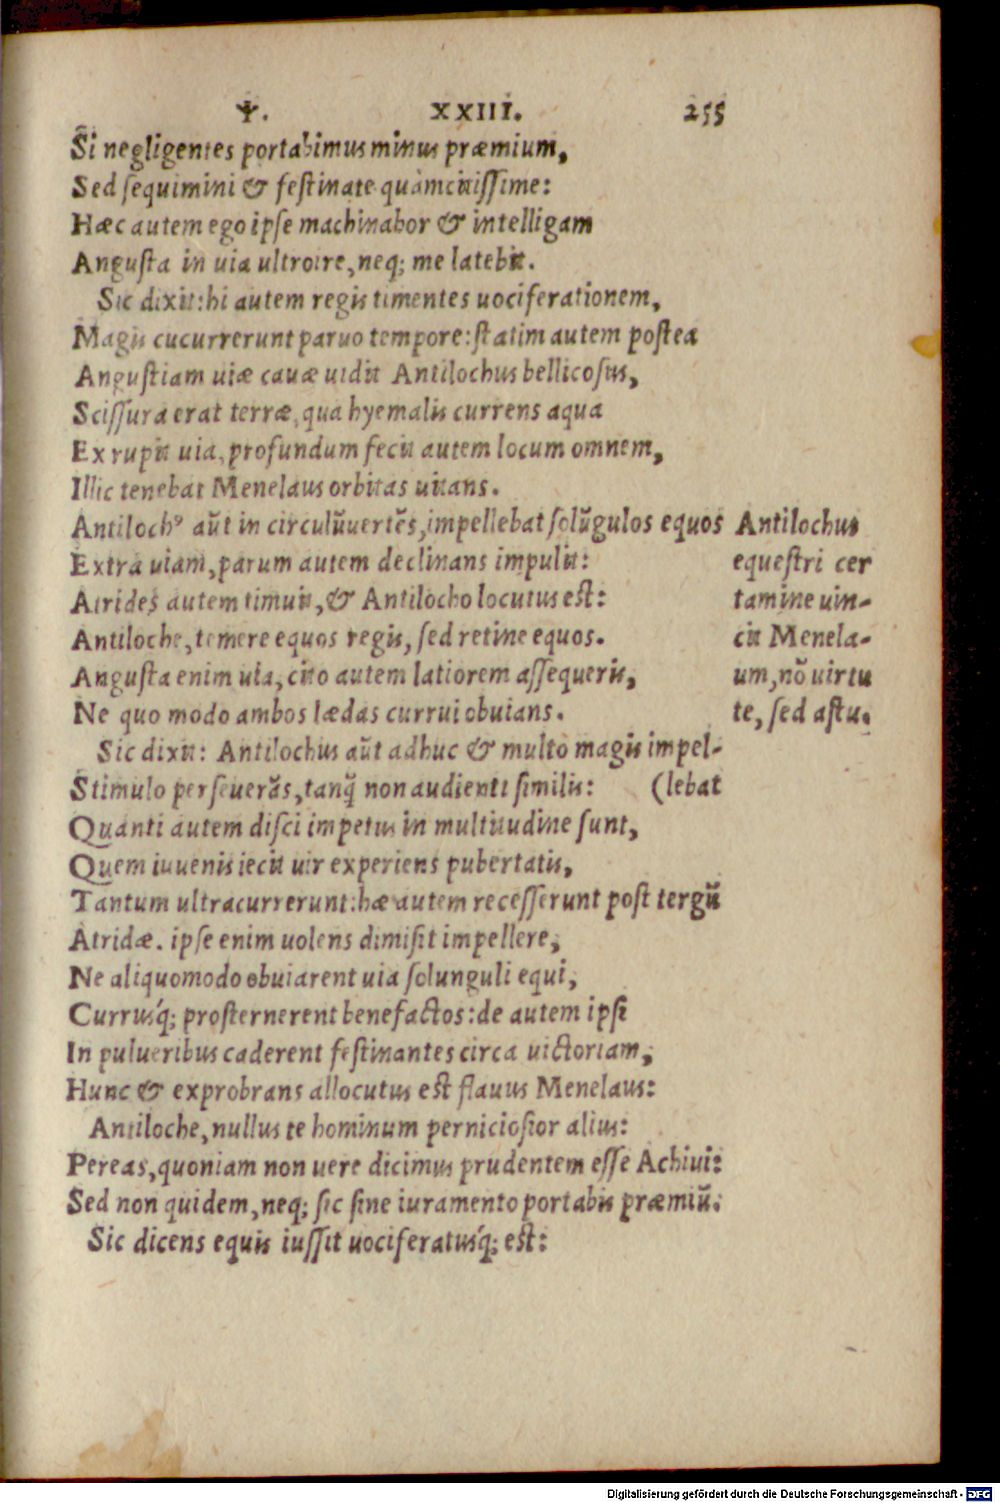 Ψ. XXIII. 255
Si negligentes portabimus minus præmium,
Sed sequimini & festinate quàmcitissime:
Hæc autem ego ipse machinabor & intelligam
Angusta in uia ultroire, neq; me latebit.
Sic dixit: hi autem regis timentes uociferationem,
Magis cucurrerunt paruo tempore: statim autem postea
Angustiam uiæ cauæ uidit Antilochus bellicosus,
Scissura erat terræ, qua hyemalis currens aqua
Exrupit uia, profundum fecit autem locum omnem,
Illic tenebat Menelaus orbitas uitans.
Antiloch⁹ aũt in circulũuertẽs, impellebat solũgulos equos
Extra uiam, parum autem declinans impulit:
Atrides autem timuit, & Antilocho locutus est:
Antiloche, temere equos regis, sed retine equos.
Angusta enim uia, cito autem latiorem assequeris,
Ne quo modo ambos lædas currui obuians.
Sic dixit: Antilochus aũt adhuc & multò magis impel-
Stimulo perseuerãs, tanq̃ non audienti similis: (lebat
Quanti autem disci impetus in multitudine sunt,
Quem iuuenis iecit uir experiens pubertatis,
Tantum ultracurrerunt: hæ autem recesserunt post tergũ
Atridæ. ipse enim uolens dimisit impellere,
Ne aliquomodo obuiarent uia solunguli equi,
Currusq́; prosternerent benefactos: de autem ipsi
In pulueribus caderent festinantes circa uictoriam,
Hunc & exprobrans allocutus est flauus Menelaus:
Antiloche, nullus te hominum perniciosior alius:
Pereas, quoniam non uere dicimus prudentem esse Achiui:
Sed non quidem, neq; sic sine iuramento portabis præmiũ.
Sic dicens equis iussit uociferatusq́; est:
Antilochus
equestri cer
tamine uin-
cit Menela-
um, nõ uirtu
te, sed astu.
Digitalisierung gefördert durch die Deutsche Forschungsgemeinschaft - DFG